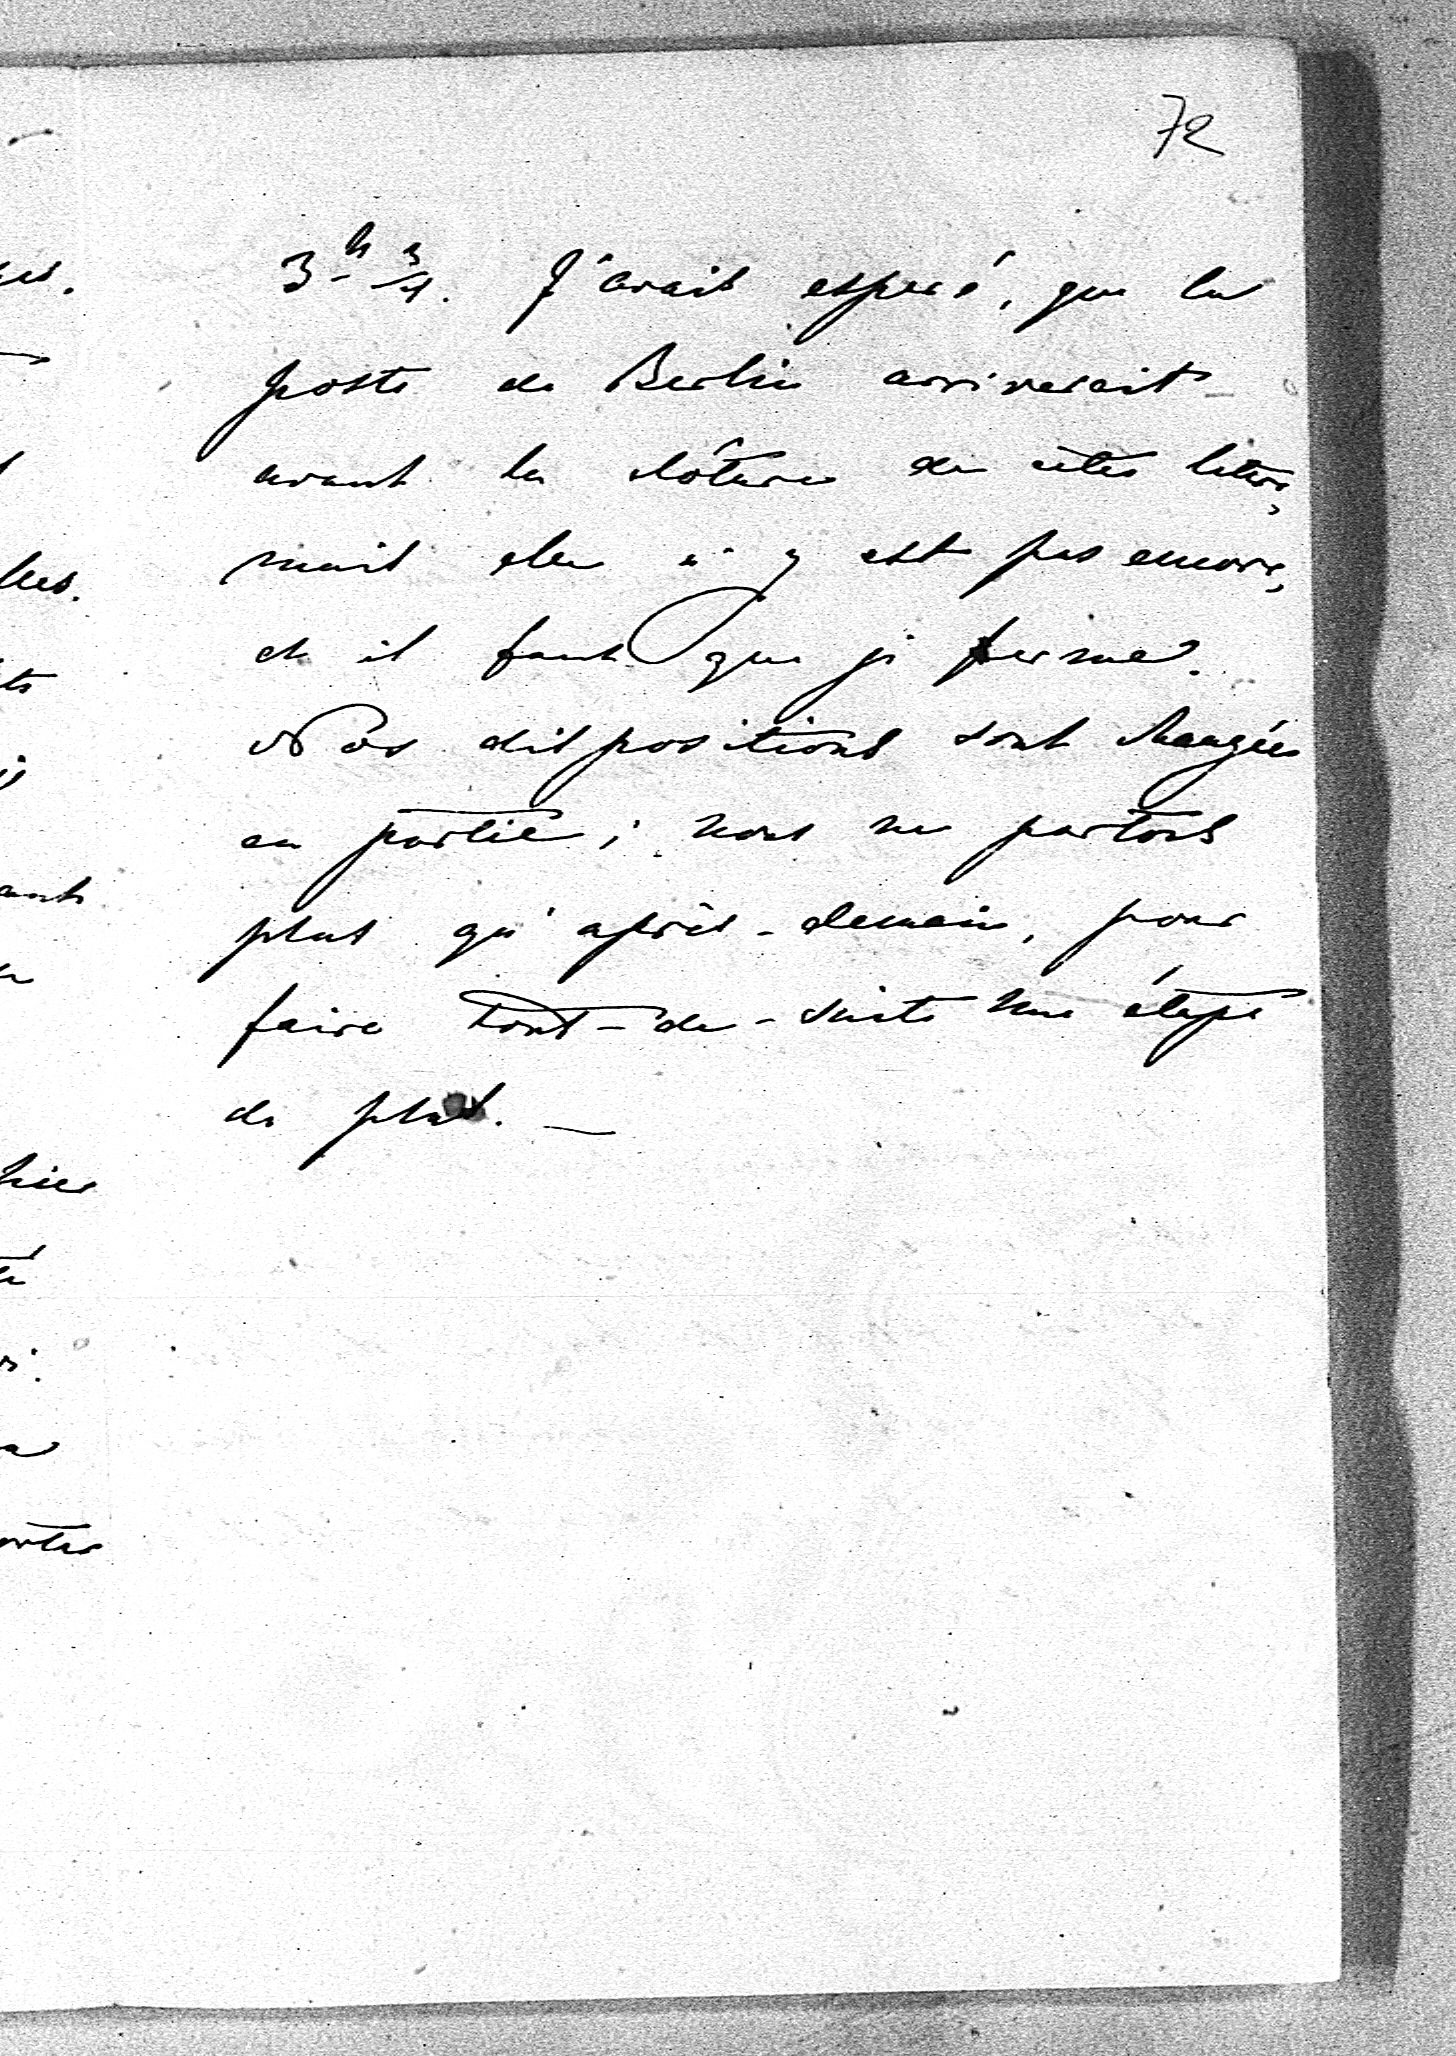 72
3h 3/4. J'avais espéré, que la
poste de Berlin arriverait
avant la clôture de cette lettre,
mais elle n'y est pas encore,
et il faut que je ferme.
Nos dispositions sont changées
en partie; nous ne partons
plus qu'après-demain, pour
faire tout-de-suite une étape
de plus. —